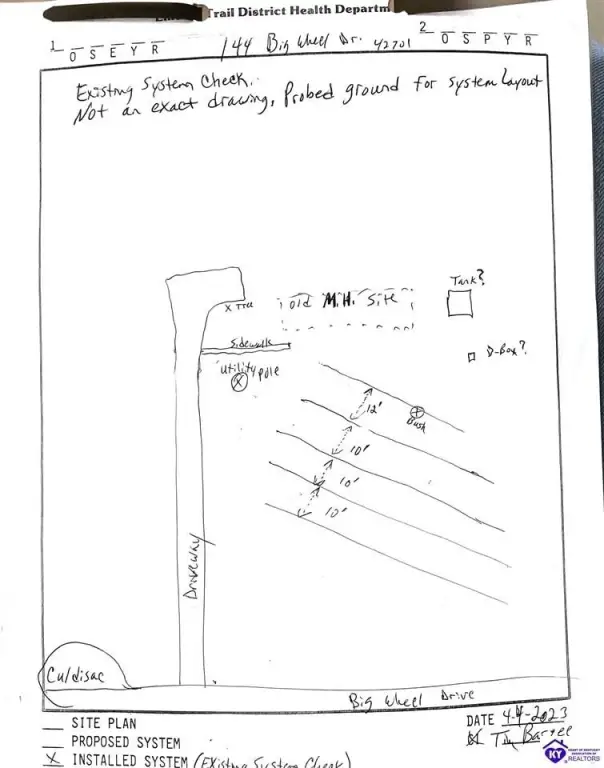 Trail District Health Departm
1 O S E Y R 144 Big Wheel Dr. 42701 2 O S P Y R
Existing System Check.
Not an exact drawing, Probed ground for system Layout
Tank?
X Tree
old M.H. Site
Sidewalk
D-Box?
utility pole
X
12'
X
Bush
10'
10'
10'
Driveway
Cu/disac
Big Wheel Drive
__ SITE PLAN
DATE 4-4-2023
__ PROPOSED SYSTEM
X INSTALLED SYSTEM (Existing System Check)
KY
HEART OF KENTUCKY
ASSOCIATION OF
REALTORS